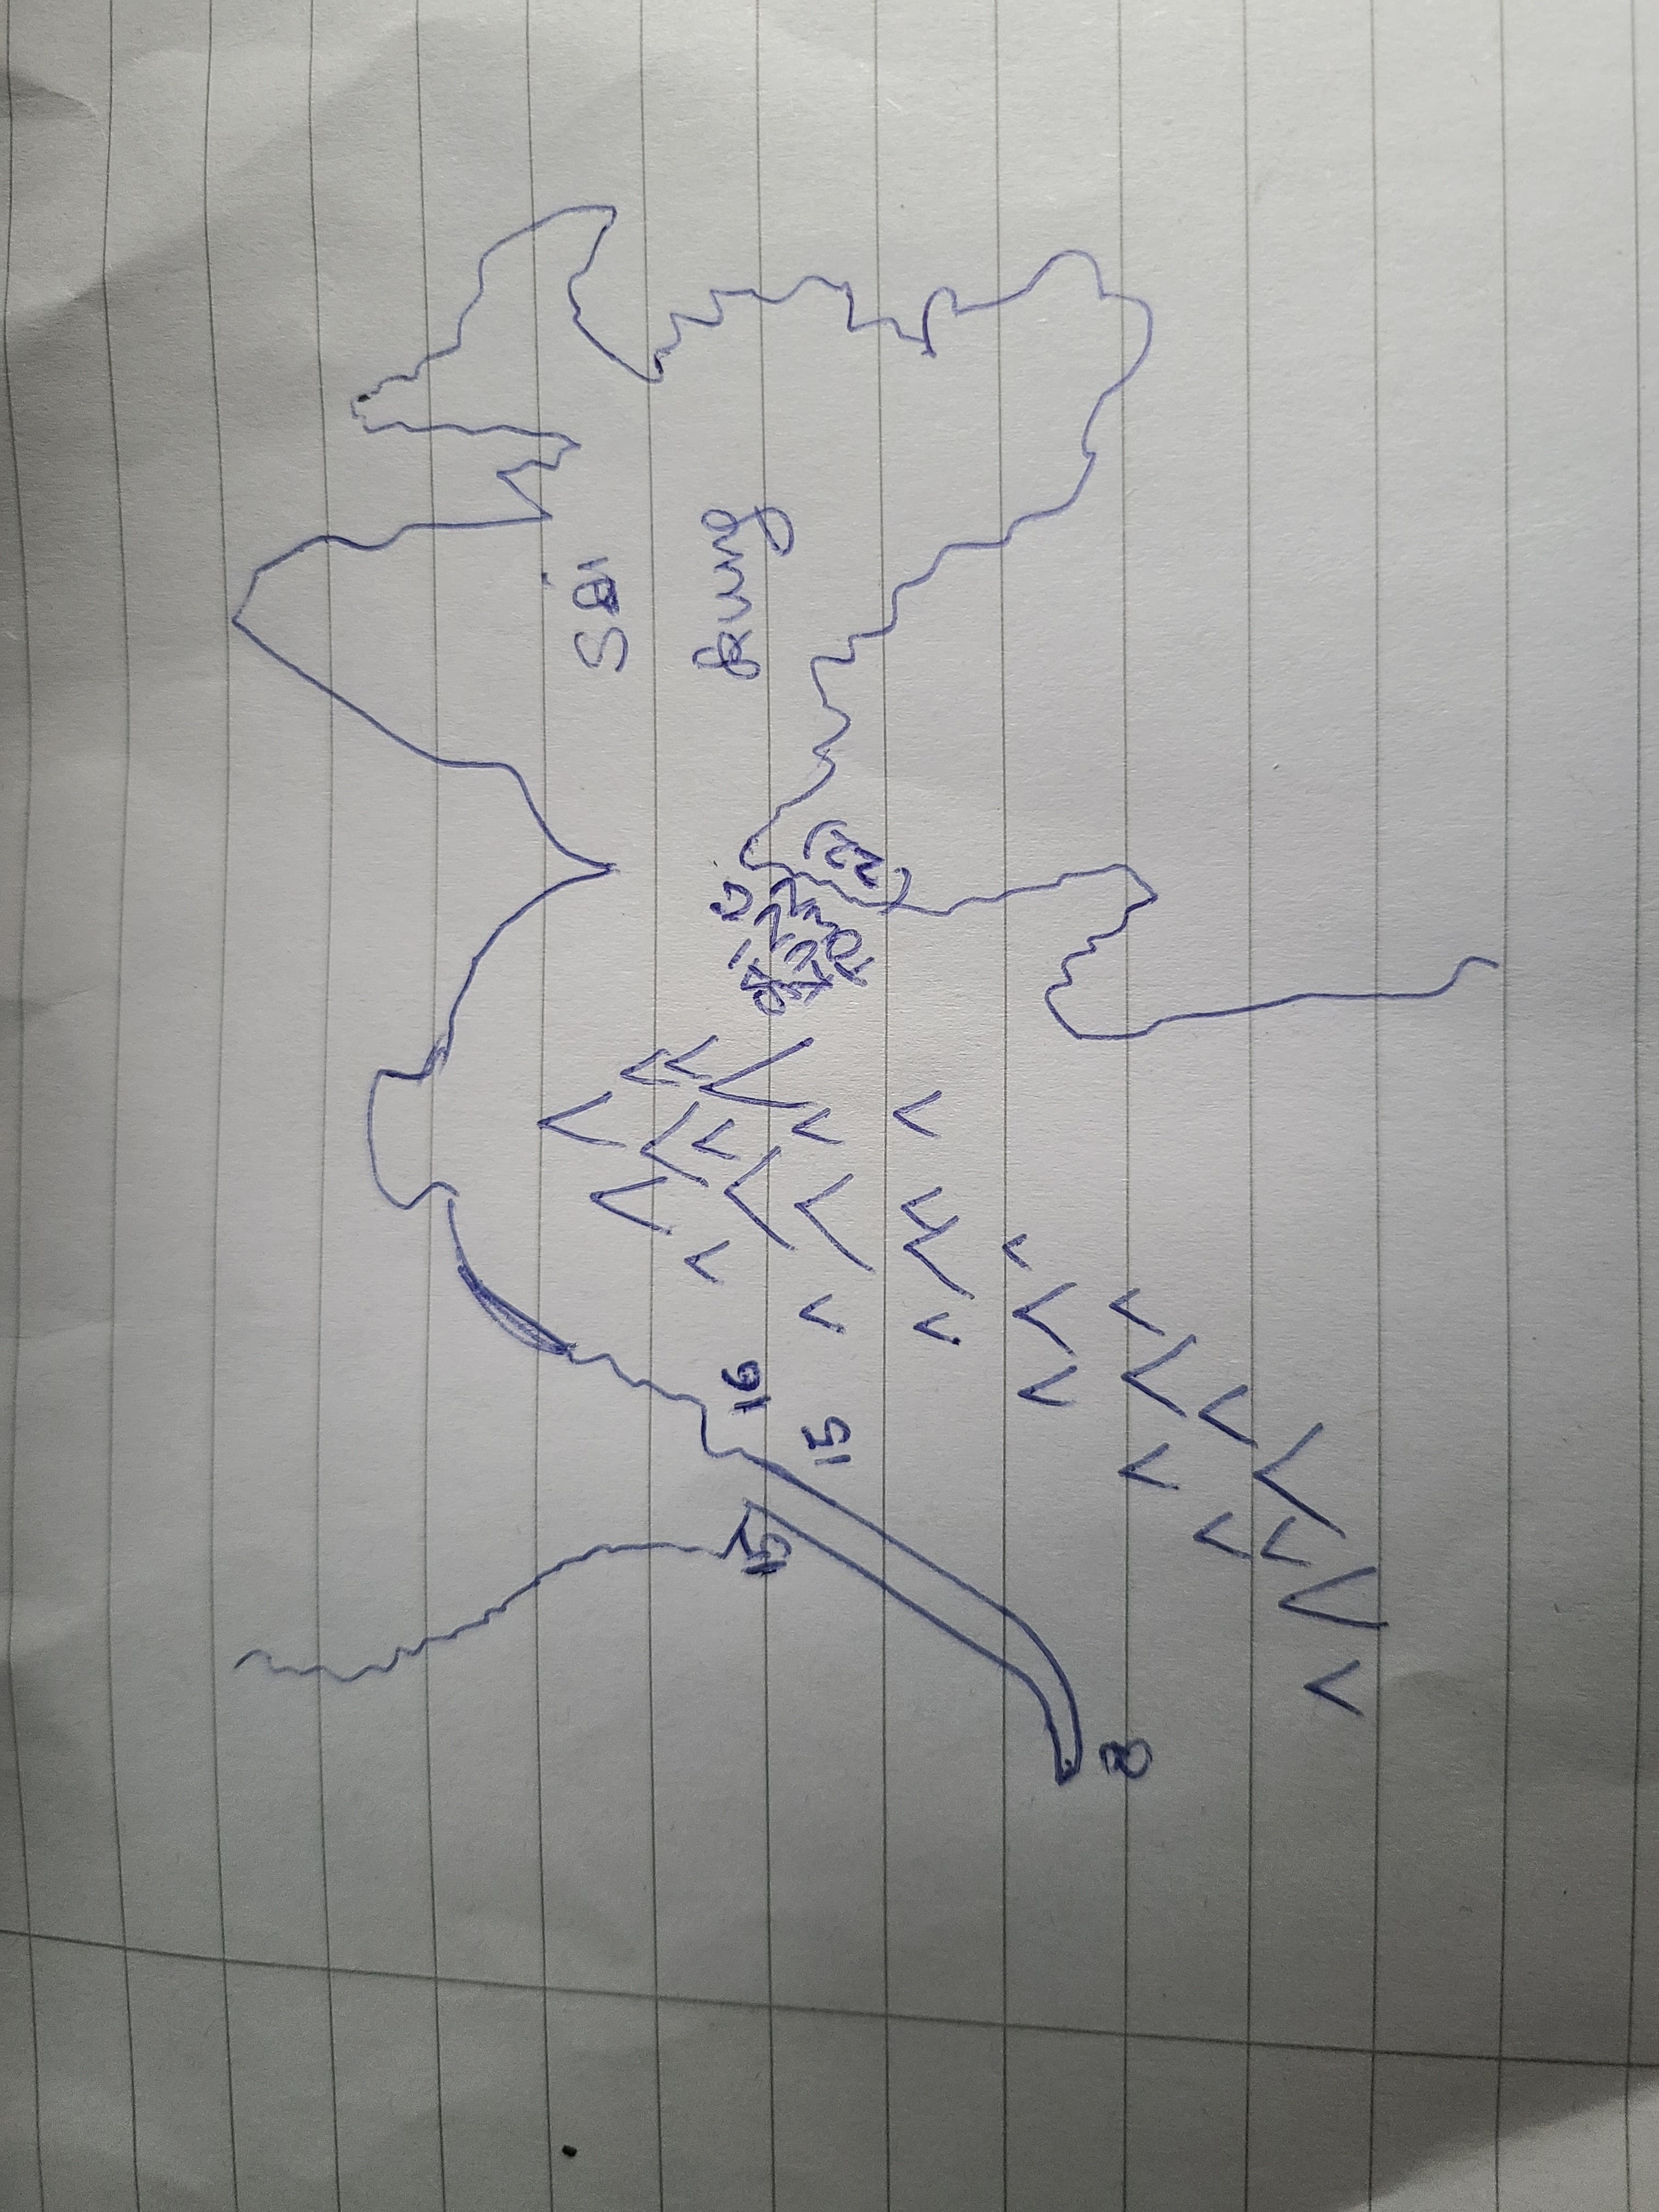 Sai
kung
15
16
15
SAI
KUNG
TOWN
(22)
8